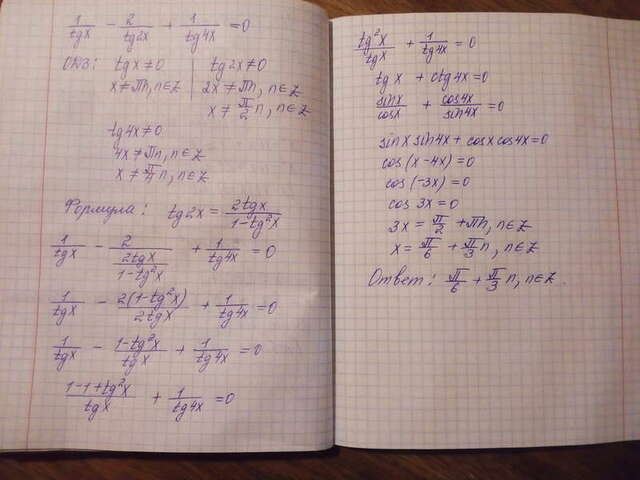 1/tgx - 2/tg2x + 1/tg4x = 0
ОДЗ: tgx ≠ 0 | tg2x ≠ 0
x ≠ πn, n∈Z | 2x ≠ πn, n∈Z
x ≠ π/2 n, n∈Z
tg4x ≠ 0
4x ≠ πn, n∈Z
x ≠ π/4 n, n∈Z
Формула: tg2x = 2tgx/(1-tg²x)
1/tgx - 2/(2tgx/(1-tg²x)) + 1/tg4x = 0
1/tgx - 2(1-tg²x)/2tgx + 1/tg4x = 0
1/tgx - (1-tg²x)/tgx + 1/tg4x = 0
(1-1+tg²x)/tgx + 1/tg4x = 0
tg²x/tgx + 1/tg4x = 0
tgx + ctg4x = 0
sinx/cosx + cos4x/sin4x = 0
sinx sin4x + cosx cos4x = 0
cos(x-4x) = 0
cos(-3x) = 0
cos 3x = 0
3x = π/2 + πn, n∈Z
x = π/6 + π/3 n, n∈Z
Ответ: π/6 + π/3 n, n∈Z.